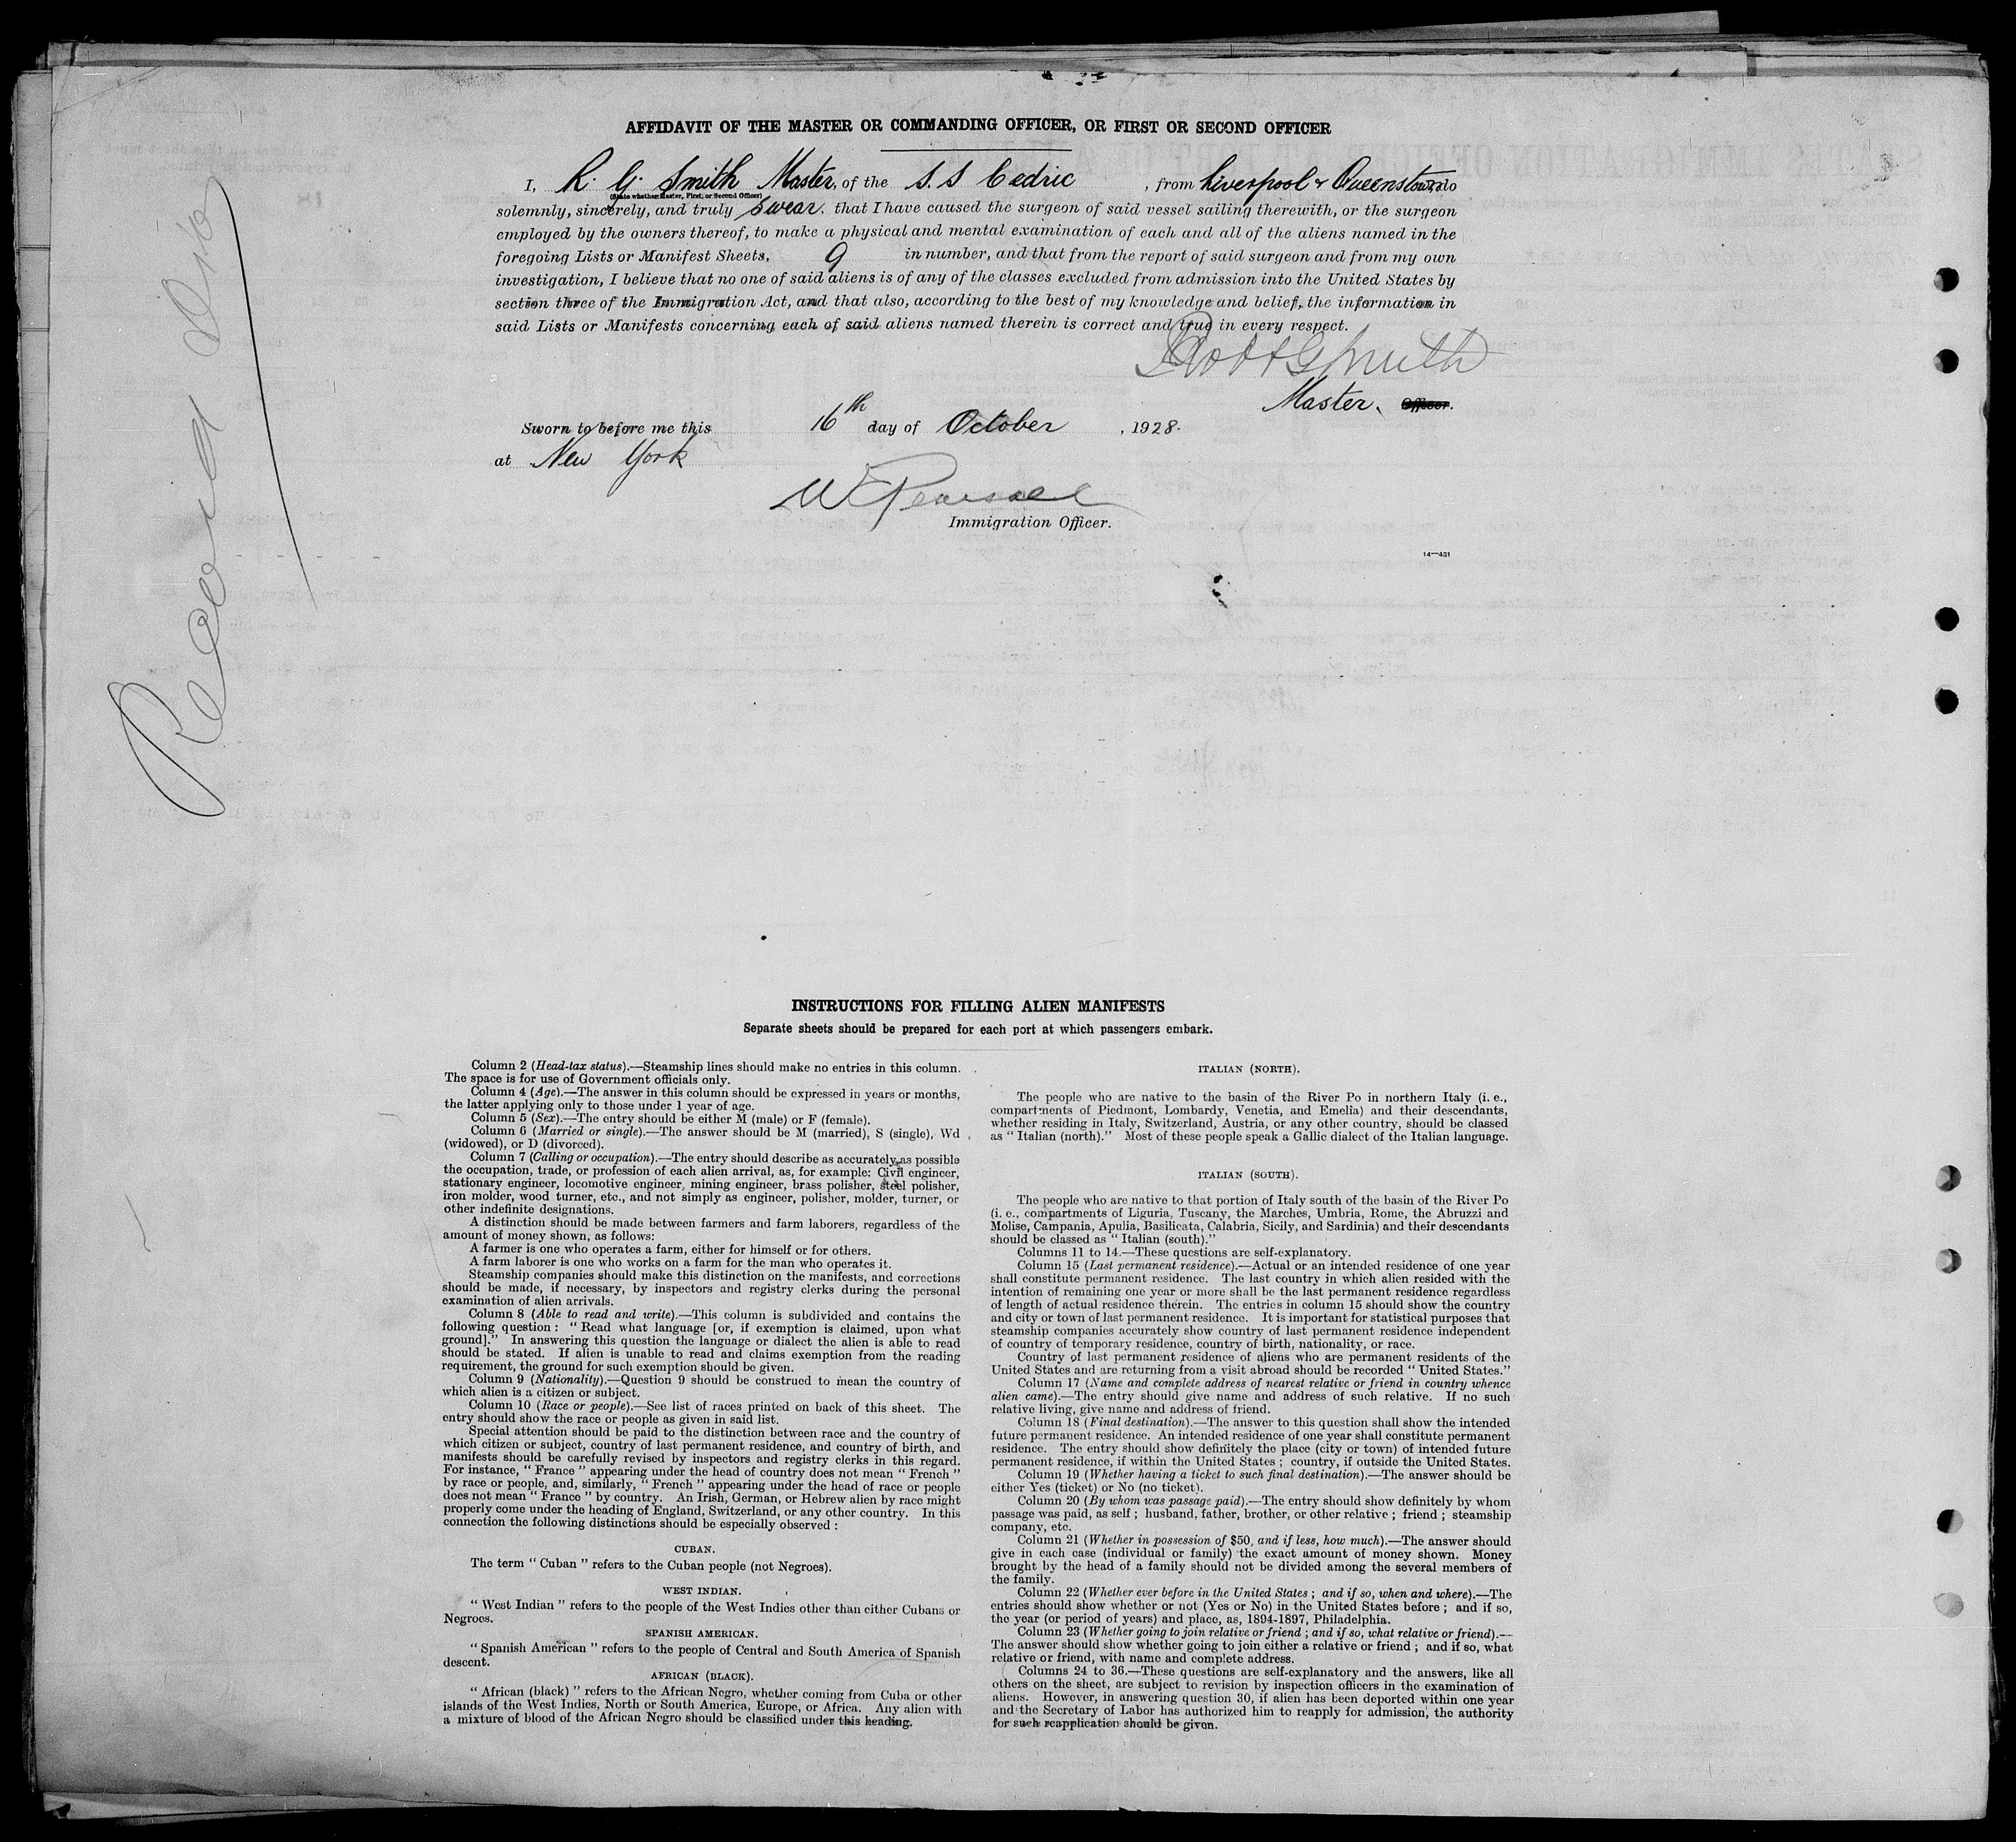 AFFIDAVIT OF THE MASTER OR COMMANDING OFFICER, OR FIRST OR SECOND OFFICER
I, R. G. Smith Master, of the S.S Cedric, from Liverpool & Queenstown do
(State whether Master, First, or Second Officer)
solemnly, sincerely, and truly swear. that I have caused the surgeon of said vessel sailing therewith, or the surgeon
employed by the owners thereof, to make a physical and mental examination of each and all of the aliens named in the
foregoing Lists or Manifest Sheets, 9 in number, and that from the report of said surgeon and from my own
investigation, I believe that no one of said aliens is of any of the classes excluded from admission into the United States by
section three of the Immigration Act, and that also, according to the best of my knowledge and belief, the information in
said Lists or Manifests concerning each of said aliens named therein is correct and true in every respect.
Robt G Smith
Master. Officer.
Sworn to before me this 16th day of October, 1928.
at New York
W Pearsall
Immigration Officer.
14—431
Record
INSTRUCTIONS FOR FILLING ALIEN MANIFESTS
Separate sheets should be prepared for each port at which passengers embark.
Column 2 (Head-tax status).—Steamship lines should make no entries in this column.
The space is for use of Government officials only.
Column 4 (Age).—The answer in this column should be expressed in years or months,
the latter applying only to those under 1 year of age.
Column 5 (Sex).—The entry should be either M (male) or F (female).
Column 6 (Married or single).—The answer should be M (married), S (single), Wd
(widowed), or D (divorced).
Column 7 (Calling or occupation).—The entry should describe as accurately as possible
the occupation, trade, or profession of each alien arrival, as, for example: Civil engineer,
stationary engineer, locomotive engineer, mining engineer, brass polisher, steel polisher,
iron molder, wood turner, etc., and not simply as engineer, polisher, molder, turner, or
other indefinite designations.
A distinction should be made between farmers and farm laborers, regardless of the
amount of money shown, as follows:
A farmer is one who operates a farm, either for himself or for others.
A farm laborer is one who works on a farm for the man who operates it.
Steamship companies should make this distinction on the manifests, and corrections
should be made, if necessary, by inspectors and registry clerks during the personal
examination of alien arrivals.
Column 8 (Able to read and write).—This column is subdivided and contains the
following question: "Read what language [or, if exemption is claimed, upon what
ground]." In answering this question the language or dialect the alien is able to read
should be stated. If alien is unable to read and claims exemption from the reading
requirement, the ground for such exemption should be given.
Column 9 (Nationality).—Question 9 should be construed to mean the country of
which alien is a citizen or subject.
Column 10 (Race or people).—See list of races printed on back of this sheet. The
entry should show the race or people as given in said list.
Special attention should be paid to the distinction between race and the country of
which citizen or subject, country of last permanent residence, and country of birth, and
manifests should be carefully revised by inspectors and registry clerks in this regard.
For instance, "France" appearing under the head of country does not mean "French"
by race or people, and, similarly, "French" appearing under the head of race or people
does not mean "France" by country. An Irish, German, or Hebrew alien by race might
properly come under the heading of England, Switzerland, or any other country. In this
connection the following distinctions should be especially observed:
CUBAN.
The term "Cuban" refers to the Cuban people (not Negroes).
WEST INDIAN.
"West Indian" refers to the people of the West Indies other than either Cubans or
Negroes.
SPANISH AMERICAN.
"Spanish American" refers to the people of Central and South America of Spanish
descent.
AFRICAN (BLACK).
"African (black)" refers to the African Negro, whether coming from Cuba or other
islands of the West Indies, North or South America, Europe, or Africa. Any alien with
a mixture of blood of the African Negro should be classified under this heading.
ITALIAN (NORTH).
The people who are native to the basin of the River Po in northern Italy (i. e.,
compartments of Piedmont, Lombardy, Venetia, and Emelia) and their descendants,
whether residing in Italy, Switzerland, Austria, or any other country, should be classed
as "Italian (north)." Most of these people speak a Gallic dialect of the Italian language.
ITALIAN (SOUTH).
The people who are native to that portion of Italy south of the basin of the River Po
(i. e., compartments of Liguria, Tuscany, the Marches, Umbria, Rome, the Abruzzi and
Molise, Campania, Apulia, Basilicata, Calabria, Sicily, and Sardinia) and their descendants
should be classed as "Italian (south)."
Columns 11 to 14.—These questions are self-explanatory.
Column 15 (Last permanent residence).—Actual or an intended residence of one year
shall constitute permanent residence. The last country in which alien resided with the
intention of remaining one year or more shall be the last permanent residence regardless
of length of actual residence therein. The entries in column 15 should show the country
and city or town of last permanent residence. It is important for statistical purposes that
steamship companies accurately show country of last permanent residence independent
of country of temporary residence, country of birth, nationality, or race.
Country of last permanent residence of aliens who are permanent residents of the
United States and are returning from a visit abroad should be recorded "United States."
Column 17 (Name and complete address of nearest relative or friend in country whence
alien came).—The entry should give name and address of such relative. If no such
relative living, give name and address of friend.
Column 18 (Final destination).—The answer to this question shall show the intended
future permanent residence. An intended residence of one year shall constitute permanent
residence. The entry should show definitely the place (city or town) of intended future
permanent residence, if within the United States; country, if outside the United States.
Column 19 (Whether having a ticket to such final destination).—The answer should be
either Yes (ticket) or No (no ticket).
Column 20 (By whom was passage paid).—The entry should show definitely by whom
passage was paid, as self; husband, father, brother, or other relative; friend; steamship
company, etc.
Column 21 (Whether in possession of $50, and if less, how much).—The answer should
give in each case (individual or family) the exact amount of money shown. Money
brought by the head of a family should not be divided among the several members of
the family.
Column 22 (Whether ever before in the United States; and if so, when and where).—The
entries should show whether or not (Yes or No) in the United States before; and if so,
the year (or period of years) and place, as, 1894-1897, Philadelphia.
Column 23 (Whether going to join relative or friend; and if so, what relative or friend).—
The answer should show whether going to join either a relative or friend; and if so, what
relative or friend, with name and complete address.
Columns 24 to 36.—These questions are self-explanatory and the answers, like all
others on the sheet, are subject to revision by inspection officers in the examination of
aliens. However, in answering question 30, if alien has been deported within one year
and the Secretary of Labor has authorized him to reapply for admission, the authority
for such reapplication should be given.